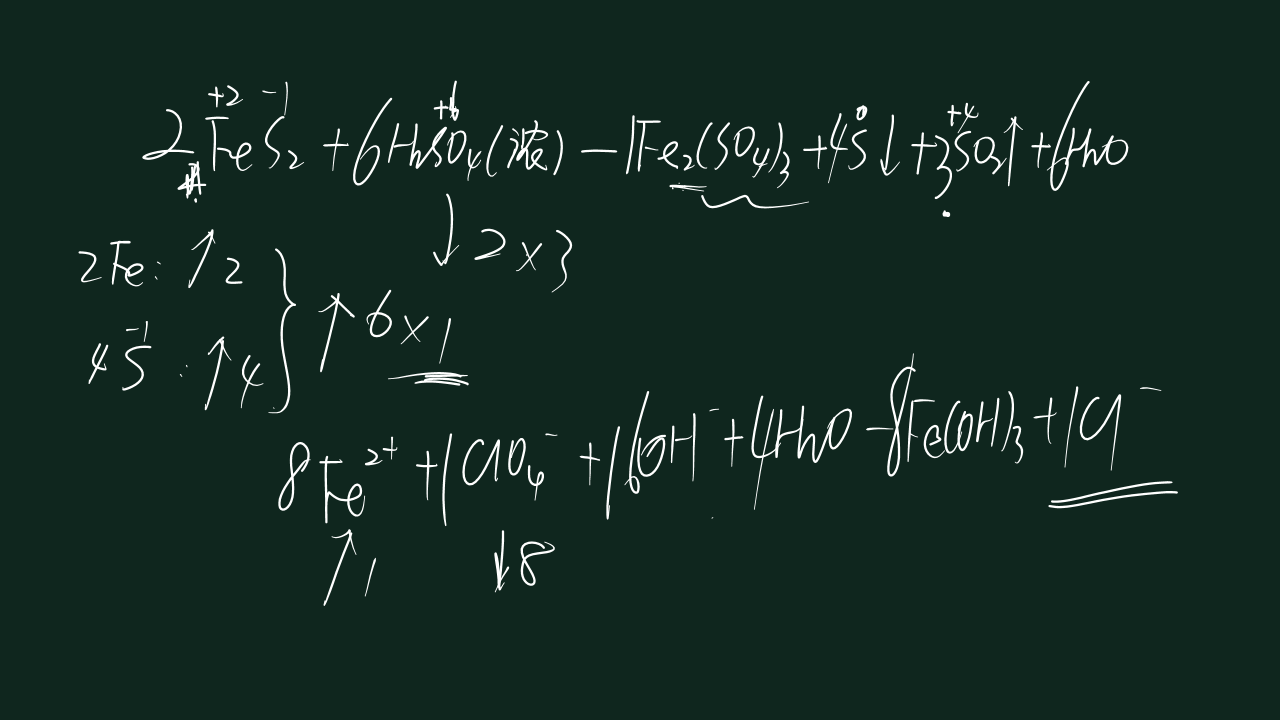 2FeS₂ + 6H₂SO₄(浓) — 1Fe₂(SO₄)₃ + 4S↓ + 3SO₂↑ + 6H₂O
+2 -1 +6 0 +4
2Fe: ↑2
↓2×3
4S⁻¹: ↑4
} ↑6×1
8Fe²⁺ + 1ClO₄⁻ + 16OH⁻ + 4H₂O — 8Fe(OH)₃ + 1Cl⁻
↑1 ↓8